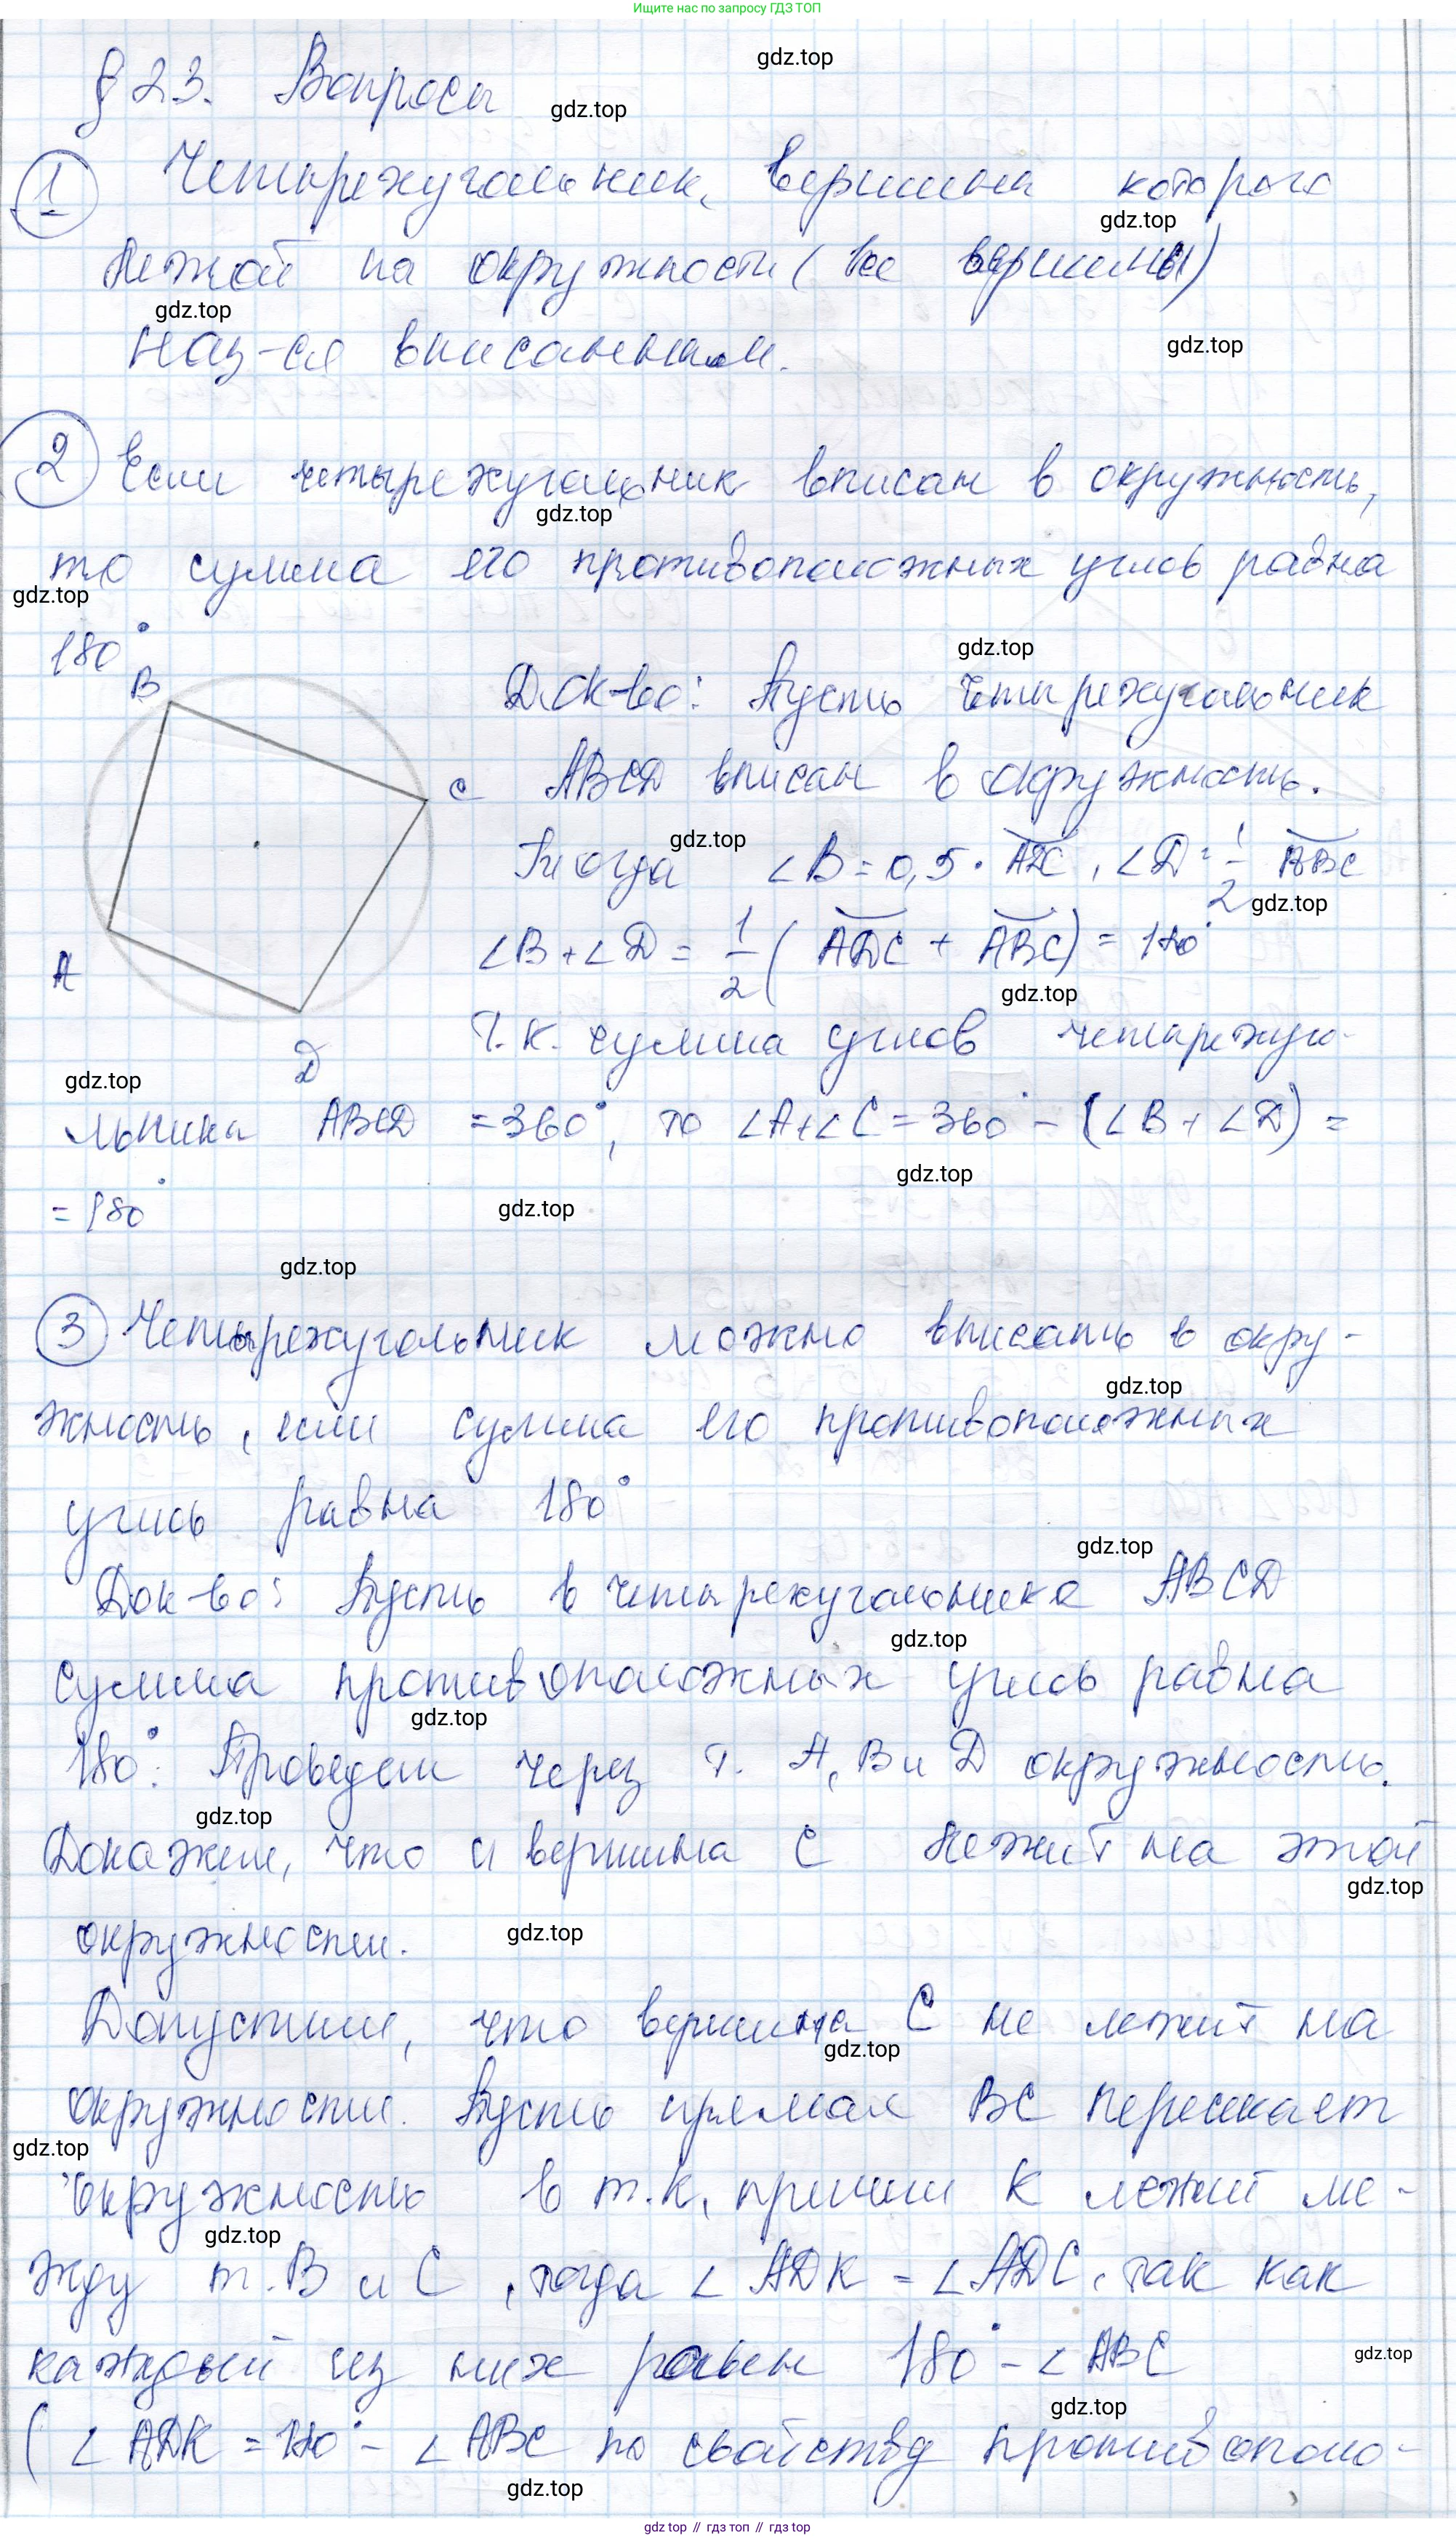 Ищите нас по запросу ГДЗ ТОП
§ 23. Вопросы
gdz.top
gdz.top
1 Четырехугольник, вершины которого
gdz.top
лежат на окружности (все вершины)
gdz.top
наз-ся вписанным.
gdz.top
2 Если четырехугольник вписан в окружность,
gdz.top
то сумма его противоположных углов равна
gdz.top
180°
gdz.top
B
Док-во: Пусть четырехугольник
C
ABCD вписан в окружность.
gdz.top
Тогда ∠B = 0,5 · ADC, ∠D = 1/2 ABC
gdz.top
∠B + ∠D = 1/2 (ADC + ABC) = 180°
A
gdz.top
Т.к. сумма углов четырехуго-
D
gdz.top
льника ABCD = 360°, то ∠A + ∠C = 360° - (∠B + ∠D) =
gdz.top
= 180°
gdz.top
gdz.top
3 Четырехугольник можно вписать в окру-
gdz.top
жность, если сумма его противоположных
углов равна 180°
gdz.top
Док-во: Пусть в четырехугольнике ABCD
gdz.top
сумма противоположных углов равна
gdz.top
180°. Проведем через т. A, B и D окружность.
gdz.top
Докажем, что и вершина C лежит на этой
gdz.top
окружности.
gdz.top
Допустим, что вершина C не лежит на
gdz.top
окружности. Пусть прямая BC пересекает
gdz.top
окружность в т. K, причем K лежит ме-
gdz.top
жду т. B и C, тогда ∠ADK = ∠ADC, так как
каждый из них равен 180° - ∠ABC
gdz.top
gdz.top
(∠ADK = 180° - ∠ABC по свойству противополо-
gdz.top
gdz.top // гдз топ // гдз.top